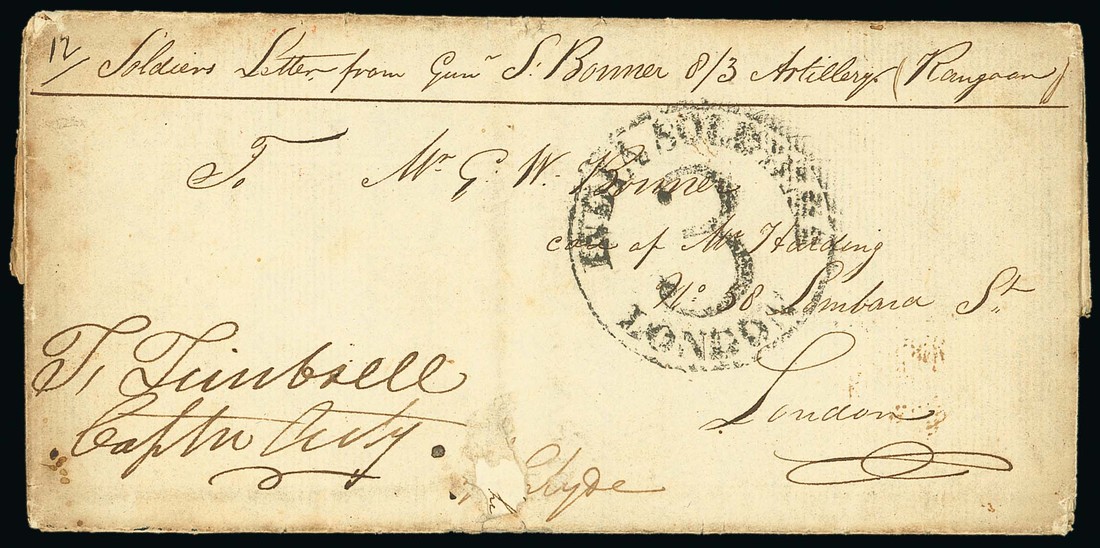 12/ Soldiers Letter from Gunr S. Bonner 8/3 Artillery (Rangoon)
To Mr G. W. Bonner
care of Mr Harding
No 58 Lombard St.
London
INDIA SOLDIERS
3
LONDON
T. Timbrell
Captn Arty.
Clyde